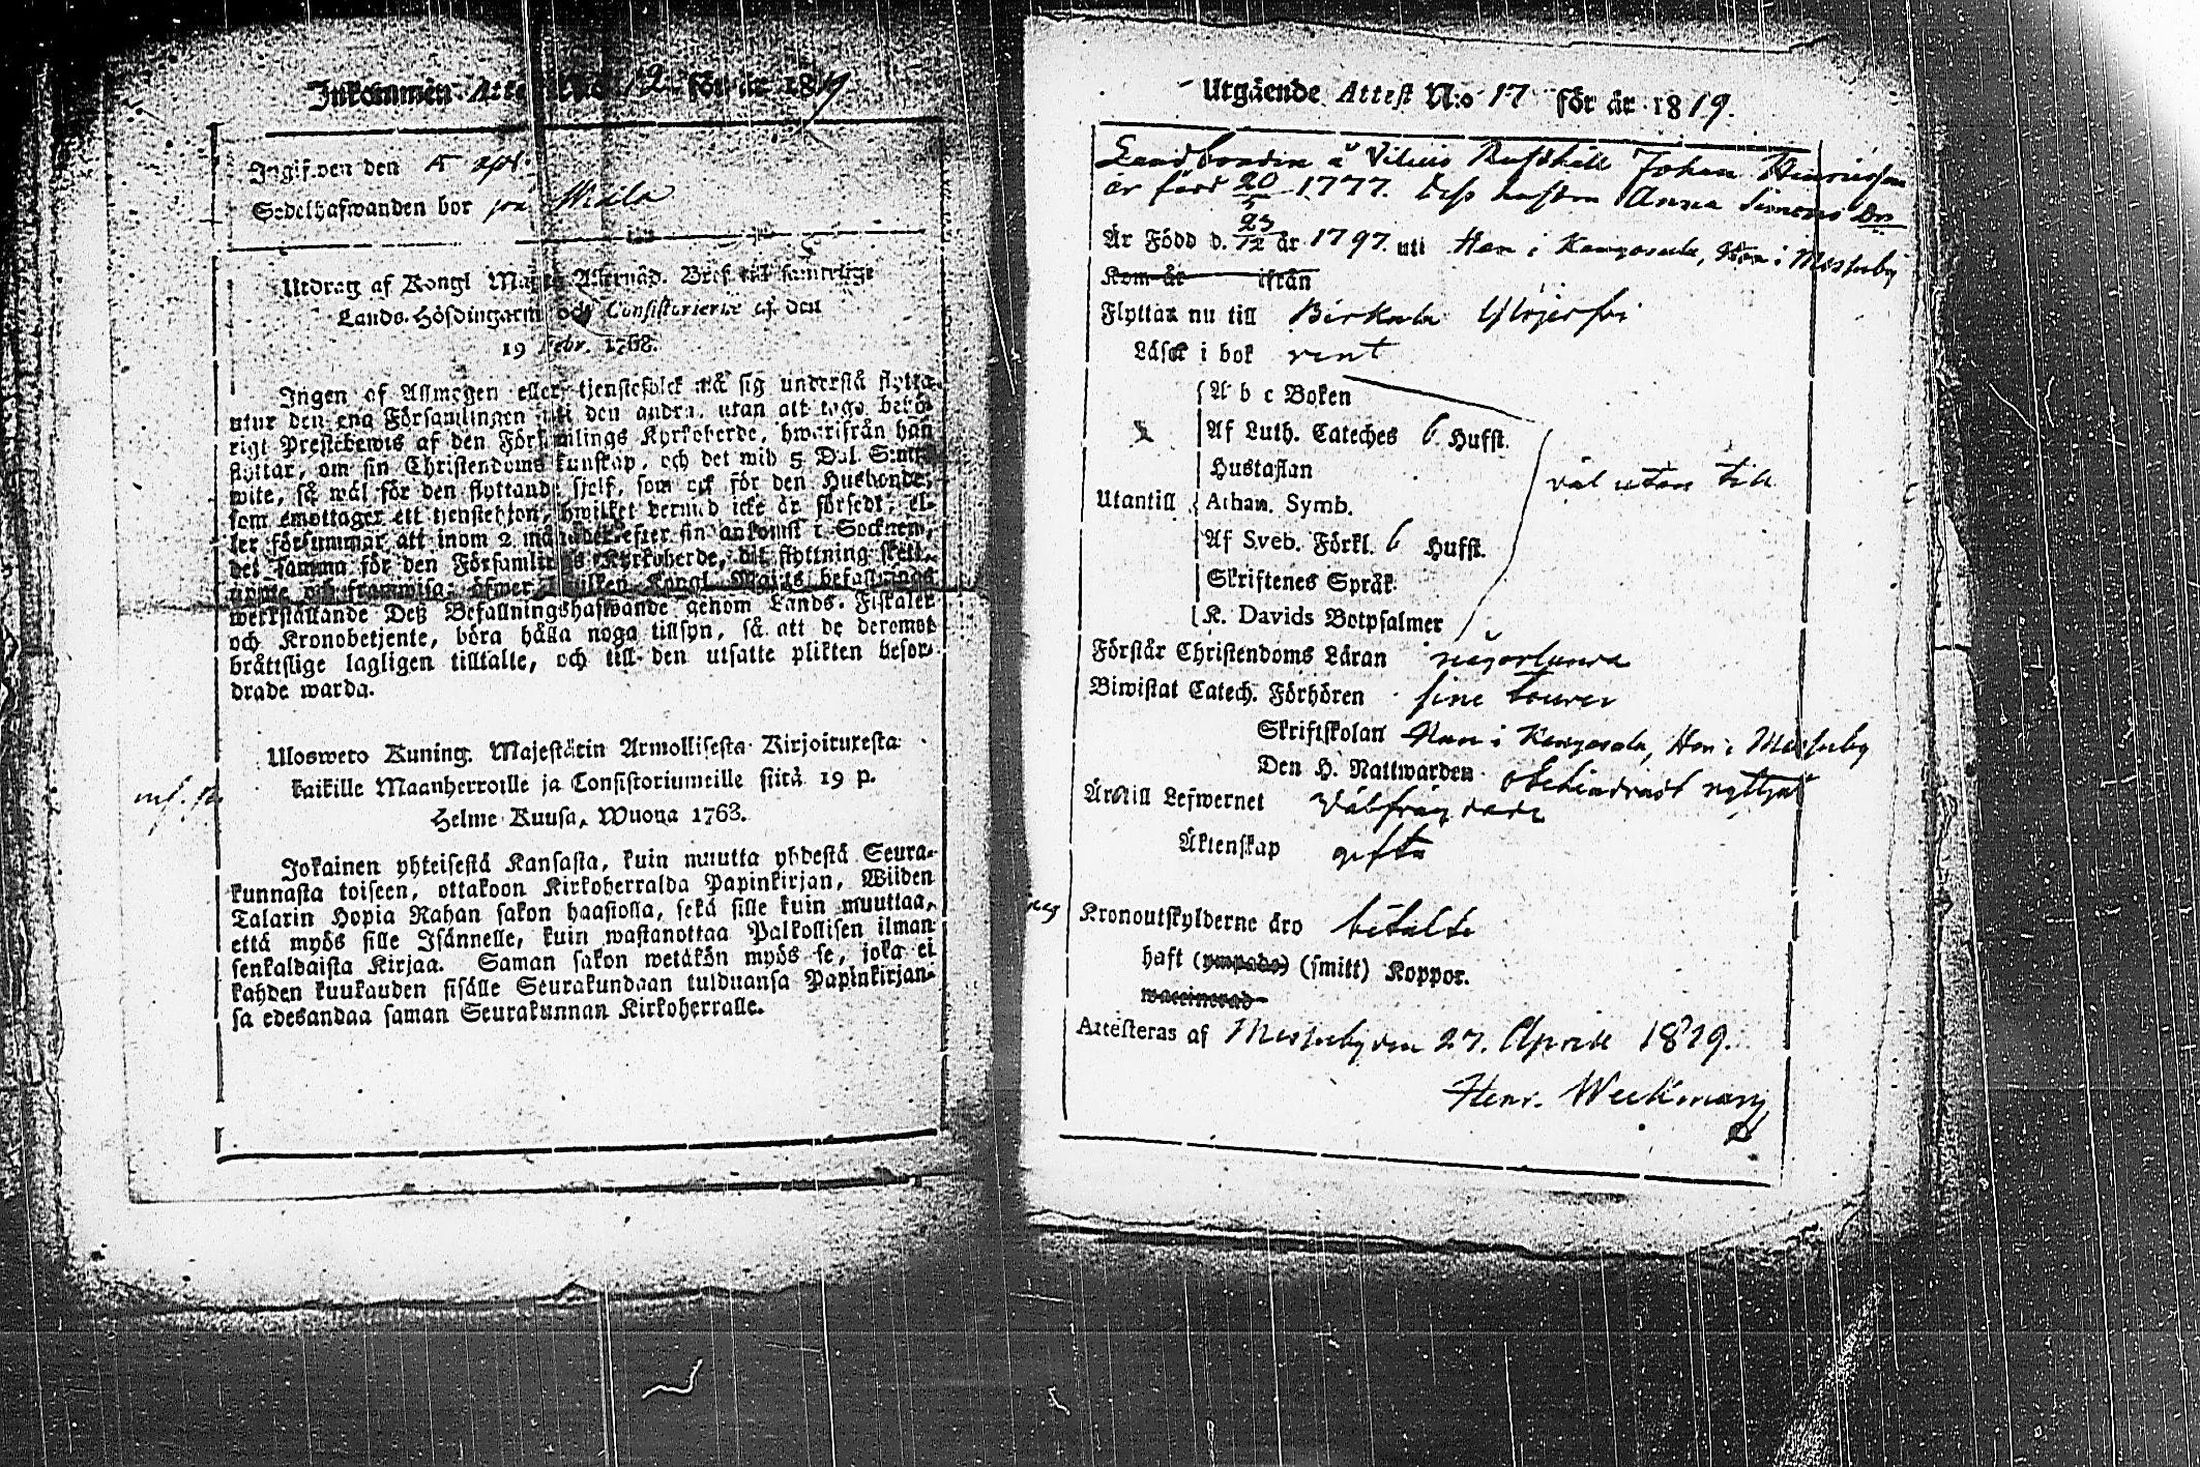 Inkommen Atte 12 för år 1819
Ingifven den 5
Sedelhafwanden bor på
Utdrag af Kongl Maj:ts Allernåd. Bref till samtelige
Lands-Höfdingarne och Consistorierne af den
19 Febr. 1768.
Ingen af Allmogen eller tjenstefolck må sig understå flytta
utur den ena Församlingen uti den andra, utan att taga behö-
rigt Prestebewis af den Församlings Kyrkoherde, hwarifrån han
flyttar, om sin Christendoms kunskap, och det wid 5 Dal. S:mts
wite, så wäl för den flyttande sjelf, som ock för den Husbonde,
som emottager ett tjenstehjon, hwilket dermed icke är försedt, el-
ler försummar att inom 2 månader efter sin ankomst i Socknen,
det samma för den Församlings Kyrkoherde, dit flyttning skett,
uppte och framwisa; öfwer hwilken Kongl. Maj:ts befallnings
werkställande Deß Befallningshafwande genom Lands-Fiskaler
och Kronobetjente, böra hålla noga tillsyn, så att de deremot
bråttslige lagligen tilltalte, och till den utsatte plikten befor-
drade warda.
Ulosweto Kuning. Majestätin Armollisesta Kirjoituxesta
kaikille Maanherroille ja Consistoriumeille siitä 19 p.
Helme Kuusa, Wuona 1763.
Jokainen yhteisestä Kansasta, kuin muutta yhdestä Seura-
kunnasta toiseen, ottakoon Kirkoherralda Papinkirjan, Wiiden
Talarin Hopia Rahan sakon haastolla, sekä sille kuin muuttaa,
että myös sille Isännelle, kuin wastanottaa Palkollisen ilman
senkaldaista Kirjaa. Saman sakon wetäkön myös se, joka ei
kahden kuukauden sisälle Seurakundaan tulduansa Papinkirjan-
sa edesandaa saman Seurakunnan Kirkoherralle.
Utgående Attest N:o 17 för år 1819.
Landbonden å Vilus Rusthåll Johan Henricsson
är född 20/5 1777. dess hustru Anna Simons Dr
Är Född d. 23/12 år 1797. uti Han i Kangasala, Hon i Messuby
Kom år ifrån
Flyttar nu till Birkala Ylöjerfvi
Läser i bok rent
A b c Boken
Af Luth. Cateches 6 Hufst.
Hustaflan
väl utan till
Utantill Athan. Symb.
Af Sveb. Förkl. 6 Hufst.
Skriftenes Språk
K. Davids Botpsalmer
Förstår Christendoms Läran någorlunda
Biwistat Catech. Förhören sine tourer
Skriftskolan Han i Kangasala, Hon i Messuby
Den H. Nattwarden obehindradt nyttjat
Är till Lefwernet välfrägdade
Äktenskap gifta
Kronoutskylderne äro betalte
haft (ympade) (smitt) Koppor.
waccinerad
Attesteras af Messuby den 27. April 1819.
Henr. Weckman